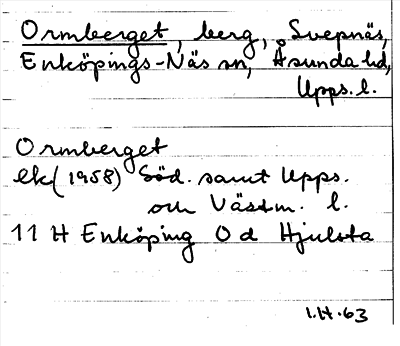 Ormberget, berg, Svepnäs,
Enköpings-Näs sn, Åsunda hd,
Upps. l.
Ormberget
ek (1958) Söd. samt Upps.
och Västm. l.
11 H Enköping 0 d Hjulsta
I.H.63